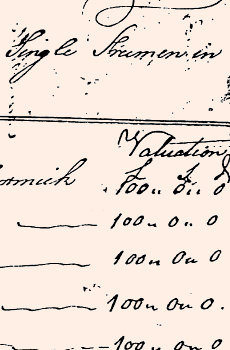 Single Freemen in
Valuation
£ s d
ormick 100 " 0 " 0
100 " 0 " 0
100 " 0 " 0
100 " 0 " 0 .
100 " 0 " 0